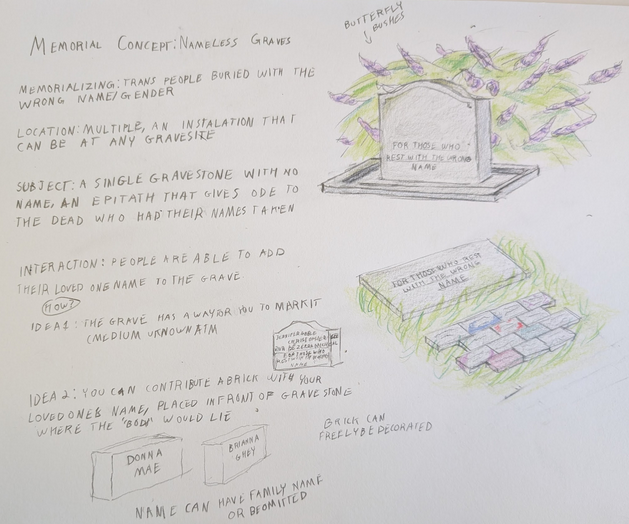 MEMORIAL CONCEPT: NAMELESS GRAVES
MEMORIALIZING: TRANS PEOPLE BURIED WITH THE
WRONG NAME/GENDER
LOCATION: MULTIPLE, AN INSTALATION THAT
CAN BE AT ANY GRAVESITE
SUBJECT: A SINGLE GRAVESTONE WITH NO
NAME, AN EPITATH THAT GIVES ODE TO
THE DEAD WHO HAD THEIR NAMES TAKEN
INTERACTION: PEOPLE ARE ABLE TO ADD
THEIR LOVED ONE NAME TO THE GRAVE
HOW?
IDEA 1: THE GRAVE HAS A WAY FOR YOU TO MARK IT
(MEDIUM UKNOWN ATM
IDEA 2: YOU CAN CONTRIBUTE A BRICK WITH YOUR
LOVED ONES NAME, PLACED INFRONT OF GRAVESTONE
WHERE THE "BODY" WOULD LIE
DONNA
MAE
BRIANNA
GHEY
NAME CAN HAVE FAMILY NAME
OR BE OMITTED
BUTTERFLY
BUSHES
FOR THOSE WHO
REST WITH THE WRONG
NAME
FOR THOSE WHO REST
WITH THE WRONG
NAME
BRICK CAN
FREELY BE DECORATED